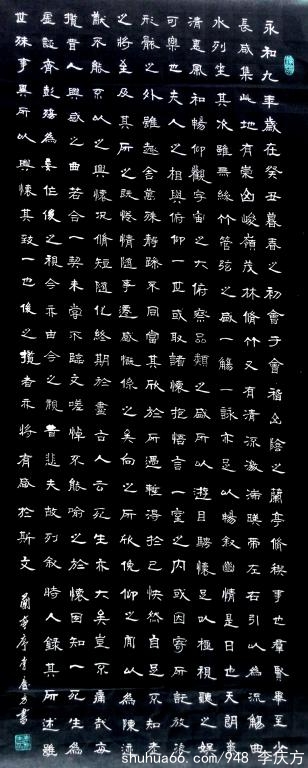 永和九年歲在癸丑暮春之初會于會稽山陰之蘭亭脩稧事也羣賢畢至少
長咸集此地有崇山峻嶺茂林脩竹又有清流激湍暎帶左右引以為流觴曲
水列坐其次雖無絲竹管弦之盛一觴一詠亦足以暢敘幽情是日也天朗氣
清惠風和暢仰觀宇宙之大俯察品類之盛所以遊目騁懷足以極視聽之娛信
可樂也夫人之相與俯仰一世或取諸懷抱悟言一室之內或因寄所託放浪
形骸之外雖趣舍萬殊靜躁不同當其欣於所遇暫得於己快然自足不知老
之將至及其所之既惓情隨事遷感慨係之矣向之所欣俛仰之間以為陳迹
猶不能不以之興懷況脩短隨化終期於盡古人云死生亦大矣豈不痛哉每
攬昔人興感之由若合一契未嘗不臨文嗟悼不能喻之於懷固知一死生為
虛誕齊彭殤為妄作後之視今亦由今之視昔悲夫故列敘時人錄其所述雖
世殊事異所以興懷其致一也後之攬者亦將有感於斯文
蘭亭序李慶方書
shuhua66.com/948 李庆方